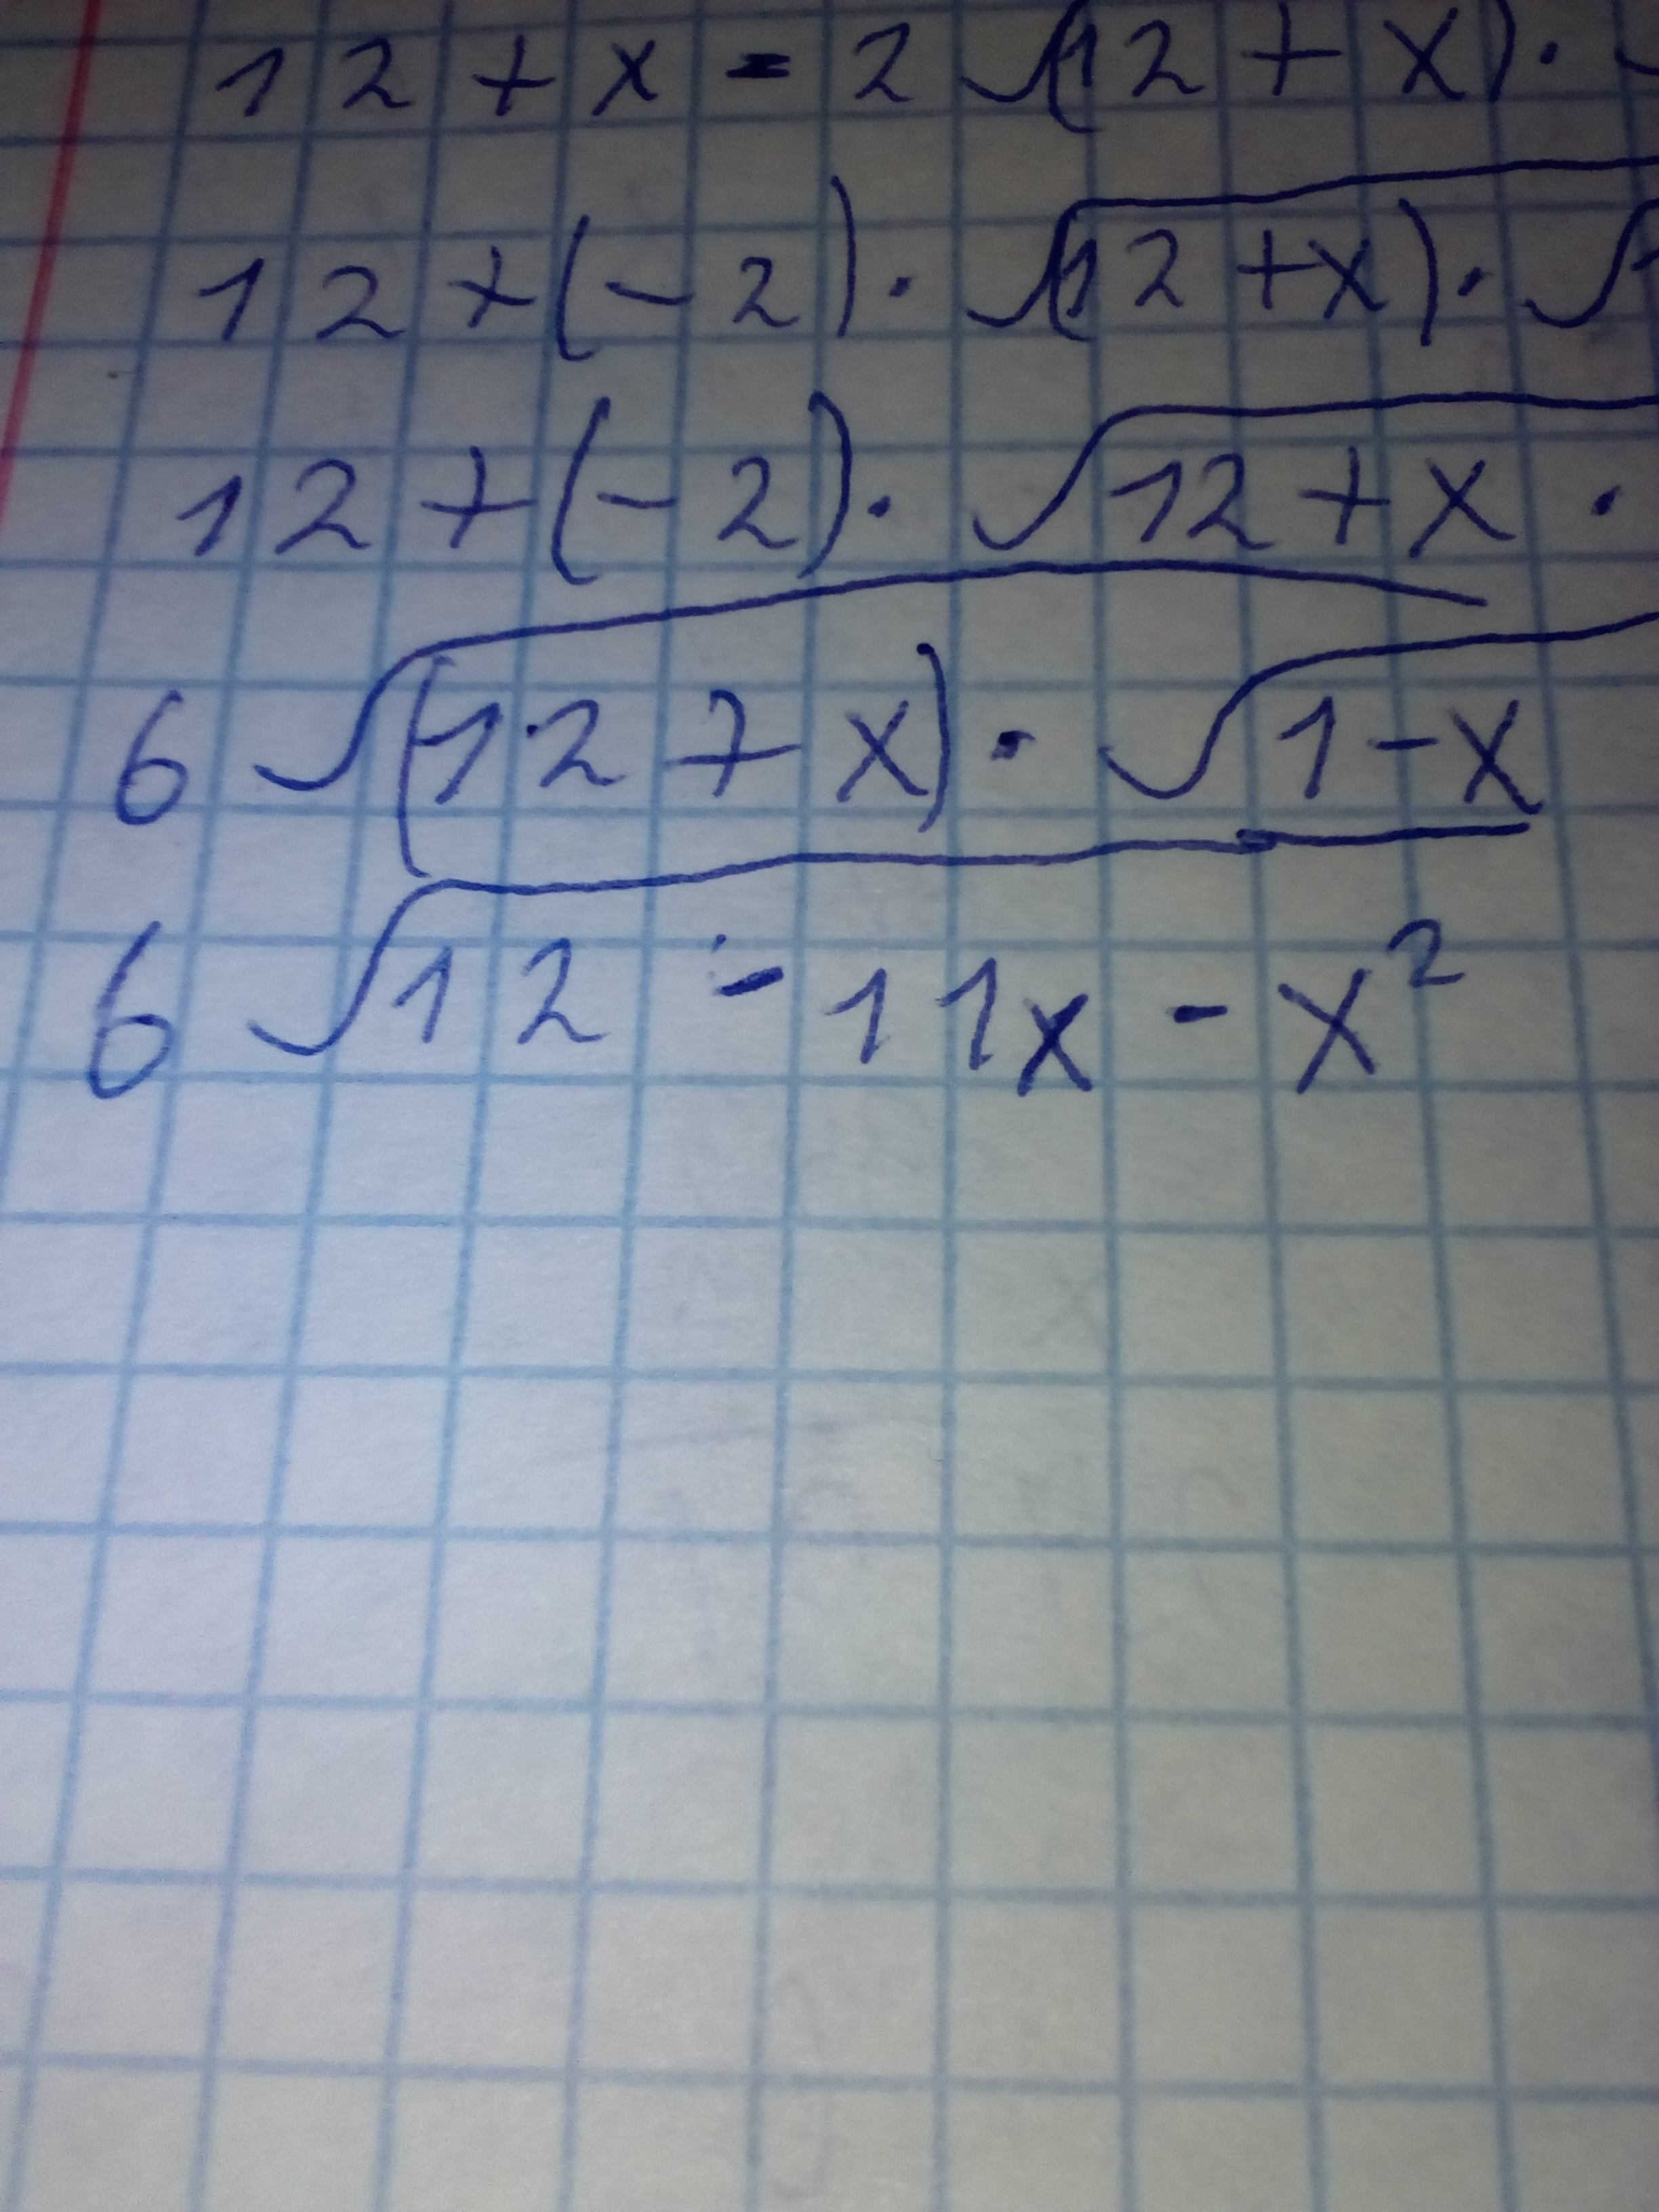 12 + x - 2 √(12 + x) ·
12 + (-2) · √(12 + x) · √1
12 + (-2) · √12 + x ·
6 √(12 + x) · √1 - x
6 √12 - 11x - x²